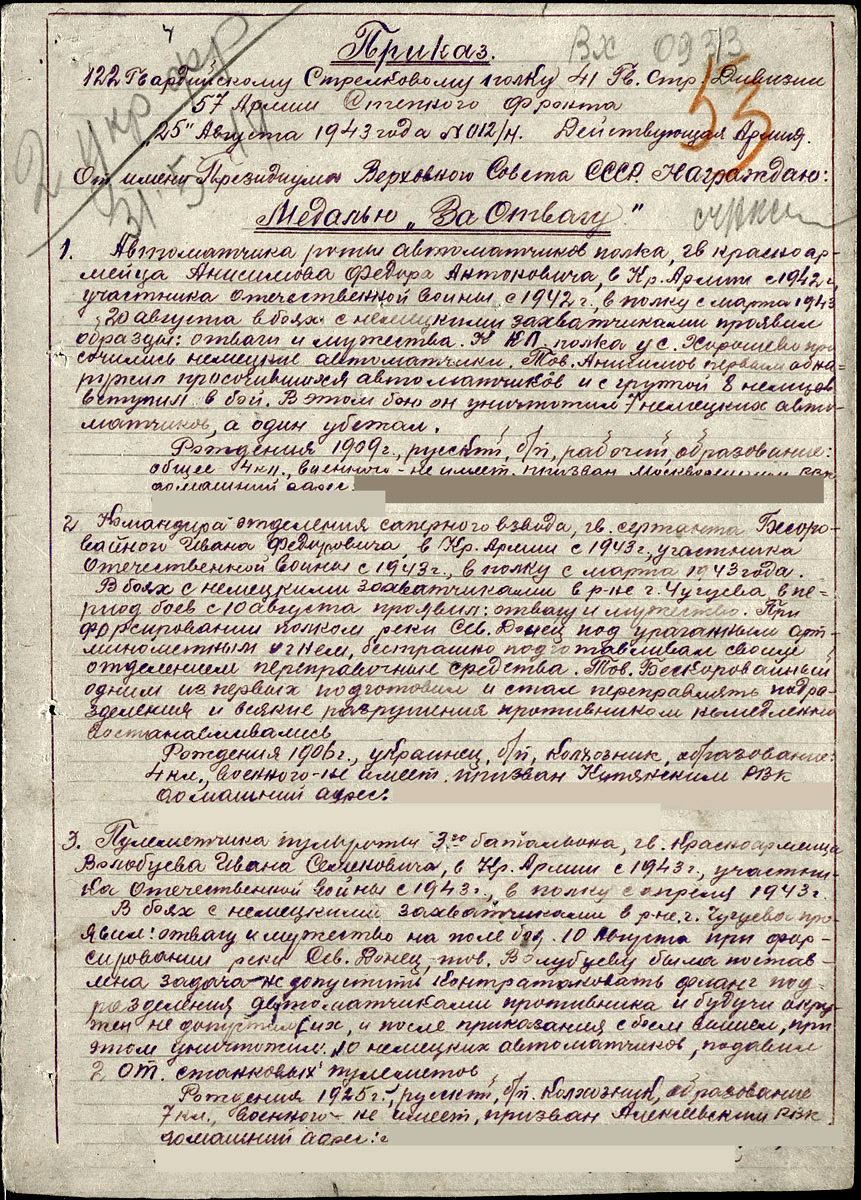 Приказ.
Вх 0933
122 Гвардийскому Стрелковому полку 41 Гв. Стр. Дивизии
53
57 Армии Степного фронта
2 Укр фр
31.5
"25" Августа 1943 года №012/н. Действующая Армия.
От имени Президиума Верховного Совета СССР. Награждаю:
Медалью "За Отвагу."
1. Автоматчика роты автоматчиков полка, гв красноар-
мейца Анисимова Федора Антоновича, в Кр. Армии с 1942 г,
участника отечественной войны с 1942 г., в полку с марта 1943
20 августа в боях с немецкими захватчиками проявил
образцы: отваги и мужества. К КП полка у с. Хорошево про
сочились немецкие автоматчики. Тов. Анисимов первым обна-
ружил просочившихся автоматчиков и с группой 8 немцев
вступил в бой. В этом бою он уничтожил 7 немецких авто-
матчиков, а один убежал.
Рождения 1909г., русский, б/п, рабочий, образование:
общее 4 кл., военного - не имеет. призван РВК
домашний адрес:
2. Командира отделения саперного взвода, гв. сержанта Бескоро-
вайного Ивана Федоровича, в Кр. Армии с 1943 г., участника
Отечественной войны с 1943 г., в полку с марта 1943 года.
В боях с немецкими захватчиками в р-не г. Чугуева, в пе-
риод боев с 10 августа проявил: отвагу и мужество. При
форсировании полком реки Сев. Донец под ураганным арт-
минометным огнем, бесстрашно подготавливал своим
отделением переправочные средства. Тов. Бескоровайный
одним из первых подготовил и стал переправлять подра-
зделения и всякие разрушения противником немедленно
востанавливались
Рождения 1906г., украинец, б/п, колхозник, образование:
4 кл., военного - не имеет, призван Купянским РВК
домашний адрес:
3. Пулеметчика пульроты 3го батальона, гв. красноармейца
Волобуева Ивана Семеновича, в Кр. Армии с 1943 г., участни-
ка Отечественной войны с 1943 г., в полку с апреля 1943 г.
В боях с немецкими захватчиками в р-не г. Чугуева про-
явил: отвагу и мужество на поле боя. 10 Августа при фор-
сировании реки Сев. Донец, тов. Волубуеву была постав-
лена задача допустить контратаковать фланг под-
разделения автоматчиками противника и будучи окру-
жен не допустил их, и после приказания с боем вышел, при
этом уничтожил: 10 немецких автоматчиков, подавил
2 от. станковых пулеметов
Рождения 1925г., русский, б/п. колхозник, образование
7 кл., военного - не имеет, призван Алексеевским РВК
домашний адрес: